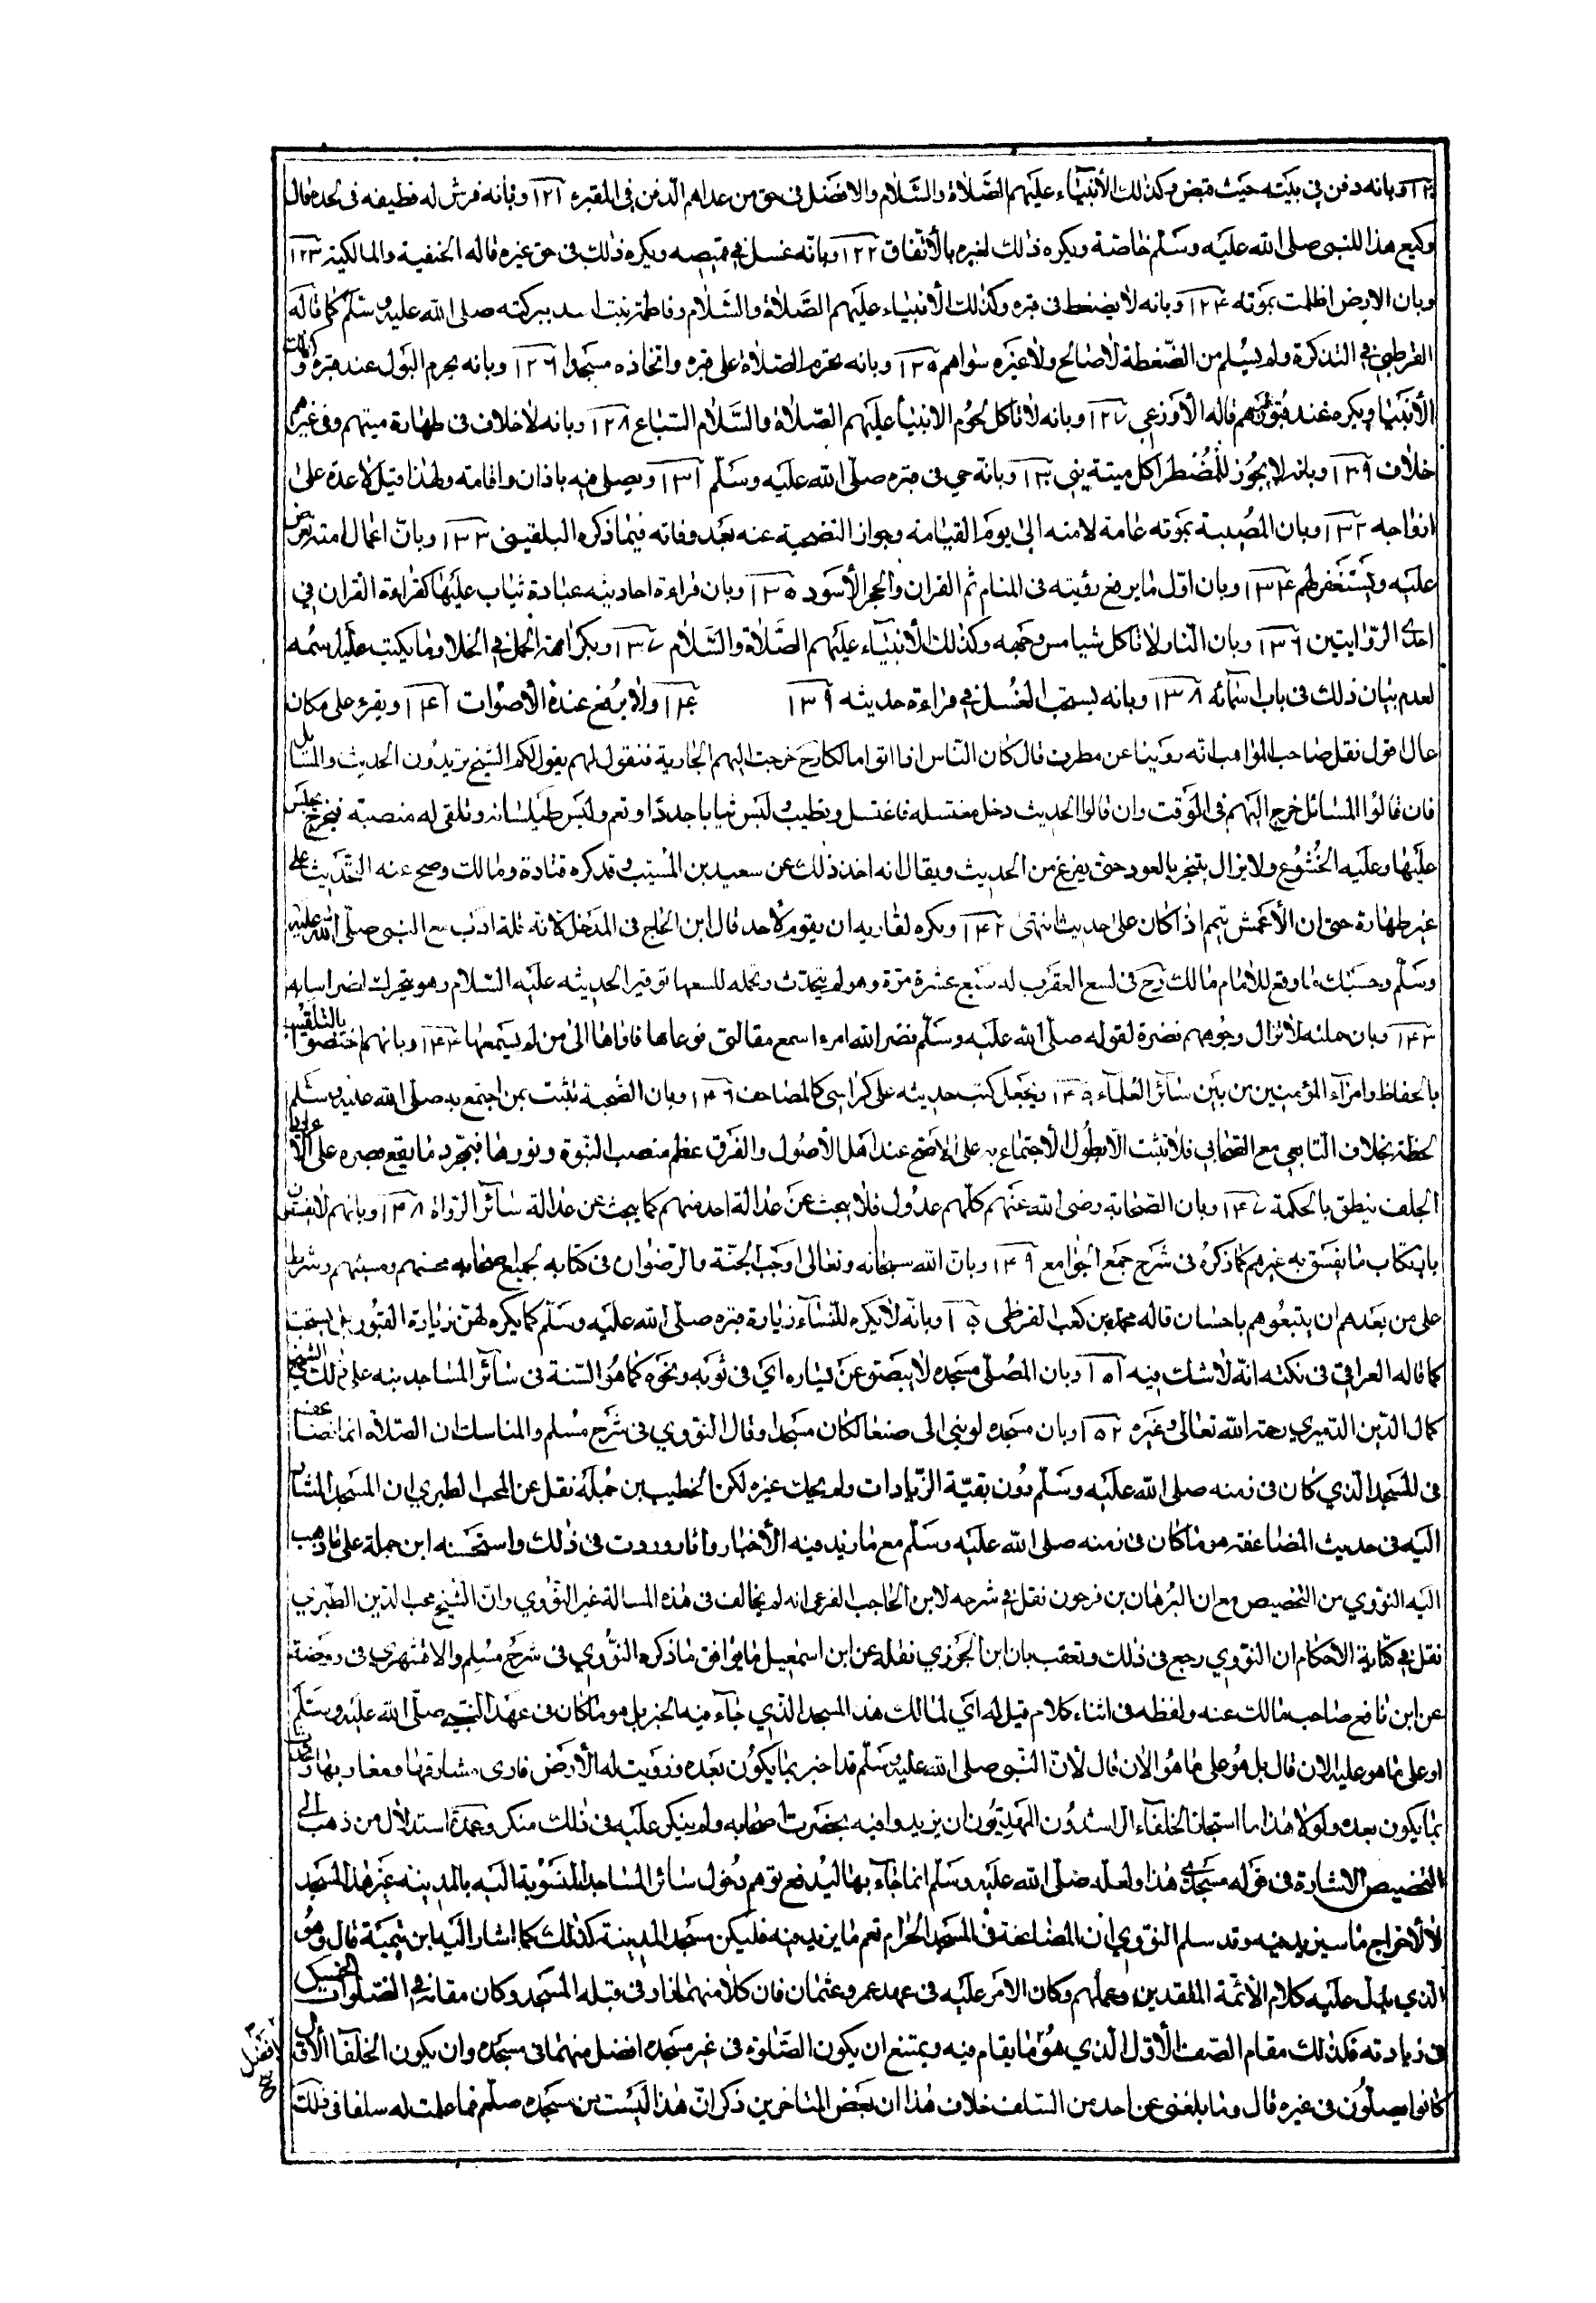 ١٢٠ وبانه دفن في بيته حيث قبض وكذلك الأنبياء عليهم الصلاة والسلام والافضل فى حق من عداهم الدفن في المقبره ١٢١ وبانه فرش له قطيفه فى لحده قال
وكيع هذا للنبى صلى الله عليه وسلم خاصة ويكره ذلك لغيره بالاتفاق ١٢٢ وبانه غسل في قميصه ويكره ذلك فى حق غيره قاله الحنفية والمالكية ١٢٣
وبان الارض اظلمت بموته ١٢۴ وبانه لا يضغط فى قبره وكذلك الأنبياء عليهم الصلاة والسلام وفاطمة بنت اسد ببركته صلى الله عليه وسلم كما قاله
القرطبي في التذكرة ولم يسلم من الضغطة لا صالح ولا غيره سواهم ١٢٥ وبانه تحرم الصلاة على قبره واتخاذه مسجدا ١٢٦ وبانه يحرم البول عند قبره وكذلك
الأنبيا ويكره عند قبور غيرهم قاله الأوزعي ١٢٧ وبانه لا تاكل لحوم الانبيا عليهم الصلاة والسلام السباع ١٢٨ وبانه لا خلاف فى طهارة ميتهم وفى غيرهم
خلاف ١٢٩ وبانه لا يجوز للمضطر اكل ميتة نبى ١٣٠ وبانه حي فى قبره صلى الله عليه وسلم ١٣١ ويصلى فيه باذان واقامة ولهذا قيل لا عدة على
ازواجه ١٣٢ وبان المصيبة بموته عامة لامته الى يوم القيامة وجواز التضحية عنه بعد وفاته فيما ذكره البلقينى ١٣٣ وبان اعمال امته تعرض
عليه ويستغفر لهم ١٣۴ وبان اول ما يرفع رؤيته فى المنام ثم القران والحجر الأسود ١٣٥ وبان قراءة احاديثه عبادة يثاب عليها كقراءة القران في
احدى الروايتين ١٣٦ وبان النار لا تاكل شيا مس وجهه وكذلك الأنبياء عليهم الصلاة والسلام ١٣٧ وبكراهة الحمل في الخلا وما يكتب عليه اسمه
لعدم بيان ذلك فى باب اسمائه ١٣٨ وبانه يستحب الغسل في قراءة حديثه ١٣٩ ١۴٠ ولا يرفع عنده الأصوات ١۴١ ويقرء على مكان
عال اقول نقل صاحب المواهب انه روينا عن مطرف قال كان الناس اذا اتوا مالكا رح خرجت اليهم الجارية فتقول لهم يقول لكم الشيخ تريدون الحديث والمسائل
فان قالوا المسائل خرج اليهم في الوقت وان قالوا الحديث دخل مغتسله فاغتسل وتطيب ولبس ثيابا جددا وتعم ولبس طيلسانه وتلقى له منصبة فيخرج يجلس
عليها وعليه الخشوع ولا يزال يتبخر بالعود حتى يفرغ من الحديث ويقال انه اخذ ذلك عن سعيد بن المسيب وقد كره قتادة ومالك وصح عنه التحديث على
غير طهارة حتى ان الأعمش يتيمم اذا كان على حديث انتهى ١۴٢ ويكره لقاريه ان يقوم لأحد قال ابن الحاج فى المدخل لانه قلة ادب مع النبى صلى الله عليه
وسلم وحسبك ما وقع للامام مالك رح فى لسع العقرب له سبع عشرة مرة وهو لم يتحدث وتحمله للسعها توقيرا لحديثه عليه السلام وهو يتحرك
١۴٣ وبان حملته لا تزال وجوههم نضرة لقوله صلى الله عليه وسلم نضر الله امرء اسمع مقالتى فوعاها فاداها الى من لم يسمعها ١۴۴ وبانهم اختصوا بالتلقيب
بالحفاظ وامراء المؤمنين من بين سائر العلماء ١۴٥ ويجعل كتب حديثه على كراسى كالمصاحف ١۴٦ وبان الصحبة تثبت بمن اجتمع به صلى الله عليه وسلم
لحظة بخلاف التابعي مع الصحابي فلا تثبت الا بطول الاجتماع به على الاصح عند اهل الأصول والفرق عظم منصب النبوة ونورها فبمجرد ما يقع بصره على الاعرابي
الجلف ينطق بالحكمة ١۴٧ وبان الصحابة رضى الله عنهم كلهم عدول فلا يبحث عن عدالة احد منهم كما يبحث عن عدالة سائر الرواة ١۴٨ وبانهم لا يفسقون
بارتكاب ما يفسق به غيرهم كما ذكره فى شرح جمع الجوامع ١۴٩ وبان الله سبحانه وتعالى اوجب الجنة والرضوان فى كتابه لجميع صحابه محسنهم ومسيئهم وشرط
على من بعدهم ان يتبعوهم باحسان قاله محمد بن كعب القرظى ١٥٠ وبانه لا يكره للنساء زيارة قبره صلى الله عليه وسلم كما يكره لهن زيارة القبور بل يستحب
كما قاله العراقي فى نكته انه لا شك فيه ١٥١ وبان المصلى بمسجده لا يبصق عن يساره اي فى ثوبه ونحوه كما هو السنة فى سائر المساجد نبه على ذلك الشيخ
كمال الدين الدميري رحمة الله تعالى وغيره ١٥٢ وبان مسجده لو بنى الى صنعا لكان مسجدا وقال النووي فى شرح مسلم والمناسك ان الصلاة انما تضاعف
فى المسجد الذي كان فى زمنه صلى الله عليه وسلم دون بقية الزيادات ولم يحك غيره لكن الخطيب بن جملة نقل عن المحب الطبري ان المسجد المشار
اليه فى حديث المضاعفة هو ما كان فى زمنه صلى الله عليه وسلم مع ما زيد فيه الأخبار واثار وردت فى ذلك واستحسنه ابن جملة على ما ذهب
اليه النووي من التخصيص مع ان البرهان بن فرحون نقل في شرحه لابن الحاجب الفرعى انه لم يخالف فى هذه المسالة غير النووي وان الشيخ محب الدين الطبري
نقل في كتابه الاحكام ان النووي رجع فى ذلك وتعقب بان ابن الجوزي نقله عن ابن اسمعيل ما يوافق ما ذكره النووي فى شرح مسلم والاقشهري فى روضة
عن ابن نافع صاحب مالك عنه ولفظه فى اثناء كلام قيل له اي لمالك هذا المسجد الذي جاء فيه الخبر بل هو ما كان فى عهد النبي صلى الله عليه وسلم
او على ما هو عليه الان قال بل هو على ما هو الان قال لأن النبى صلى الله عليه وسلم قد اخبر بما يكون بعده وزويت له الأرض فارى مشارقها ومغاربها وتحدث
بما يكون بعده ولولا هذا ما استجاز الخلفاء الراشدون المهديون ان يزيدوا فيه بحضرت اصحابه ولم ينكر عليه فى ذلك منكر وعمدة استدلال من ذهب الى
التخصيص الاشارة فى قوله مسجدي هذا ولعله صلى الله عليه وسلم انما جاء بها ليدفع توهم دخول سائر المساجد المنسوبة اليه بالمدينه غير هذا المسجد
لا لاخراج ما سيزيد فيه وقد سلم النووي ان المضاعفة فى المسجد الحرام تعم ما يزيد فيه فليكن مسجد المدينة كذلك كما اشار اليه ابن تيمية قال وهو
الذي يدل عليه كلام الأئمة المتقدمين وعملهم وكان الامر عليه فى عهد عمر وعثمان فان كلا منهما زاد فى قبلة المسجد وكان مقامه في الصلوات الخمس
فى زيادته فكذلك مقام الصف الأول الذي هو ما يقام فيه ويمتنع ان يكون الصلوة فى غير مسجده افضل منها فى مسجده وان يكون الخلفا الأول
كانوا يصلون فى غيره قال وما بلغنى عن احد من السلف خلاف هذا ان بعض المتاخرين ذكر ان هذا ليست من مسجده صلعم فما علمت له سلفا فى ذلك
افضل صح